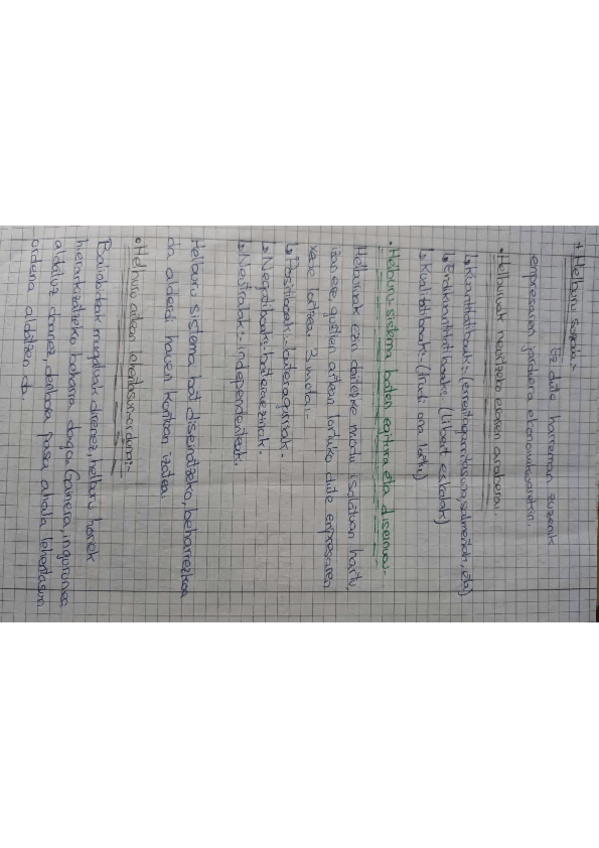 + Helburu soziala:-
Ez dute harreman zuzenik
enpresaren jarduera ekonomikoarekin.
• Helburuak neurtzeko eraren arabera:
↳ Kuantitatiboak:- (errentagarritasuna, salmentak, eta)
↳ Erdikuantitatiboak:- (Likert eskalak)
↳ Kualitatiboak:- (Irudi ona lortu)
• Helburu-sistema baten egitura eta diseinua:-
Helburuak ezin daitezke modu isolatuan hartu,
izan ere, guztien artean lortuko dute enpresaren
xede lortzea. 3 mota:-
↳ Positiboak:- bateragarriak.
↳ Negatiboak:- bateraezinak.
↳ Neutralak:- independenteak.
Helburu sistema bat diseinatzeko, beharrezkoa
da alderdi hauek kontuan izatea:
• Helburu arteko lehentasun-ordena:-
Baliabideak mugatuak direnez, helburu horiek
hierarkizatzeko beharra dago. Gainera, ingurunea
aldatuz doanez, denbora pasa ahala lehentasun
ordena aldatzen da.